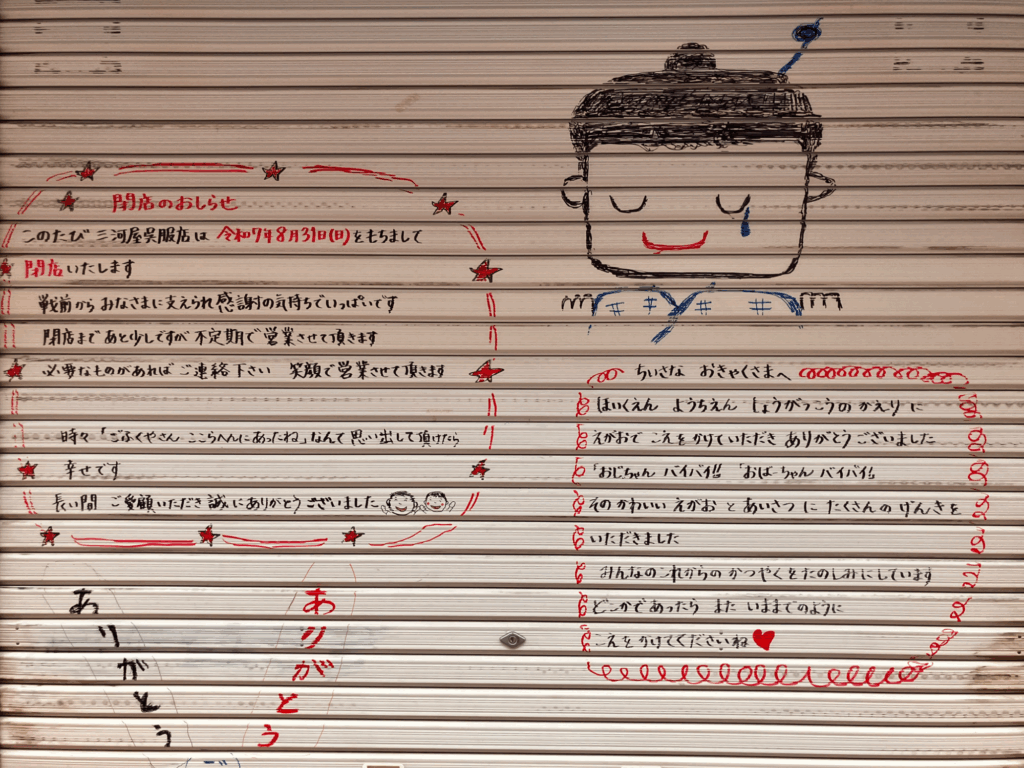 閉店のおしらせ
このたび 三河屋呉服店は 令和7年8月31日(日)をもちまして
閉店いたします
戦前から おなさまに支えられ 感謝の気持ちでいっぱいです
閉店まで あと少しですが 不定期で 営業させて頂きます
必要なものがあれば ご連絡下さい 笑顔で営業させて頂きます
時々 「ごふくやさん ここらへんにあったね」なんて 思い出して頂けたら
幸せです
長い間 ご愛顧いただき 誠にありがとうございました
ありがとう
ありがとう
ちいさな おきゃくさまへ
ほいくえん ようちえん しょうがっこうの かえり に
えがおで こえを かけていただき ありがとうございました
「おじちゃん バイバイ!! 「おばーちゃん バイバイ!!
その かわいい えがお と あいさつ に たくさんの げんきを
いただきました
みんなの これからの かつやくを たのしみにしています
どこかで あったら また いままでのように
こえを かけてくださいね